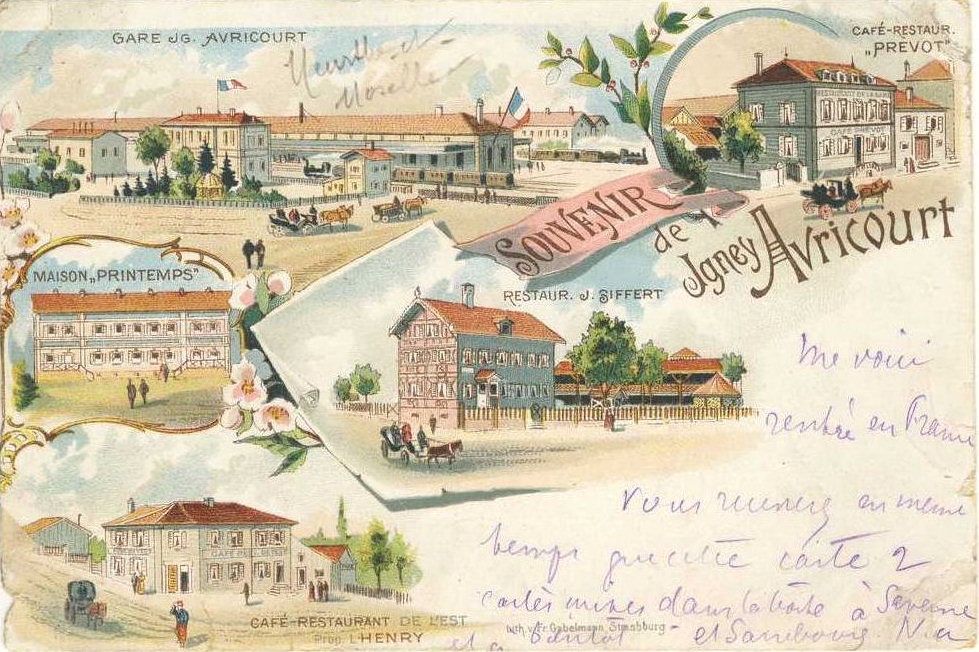 GARE JG. AVRICOURT
Meurthe et
Moselle
CAFÉ-RESTAUR.
„PREVOT"
RESTAURANT DE LA GARE
CAFÉ PREVOT
SOUVENIR
de
Jgney Avricourt
MAISON „PRINTEMPS"
RESTAUR. J. SIFFERT
me voici
rentré en France
Vous recevrez en meme
temps que cette carte 2
cartes mises dans la boite à Saverne
et à bientôt et Sarrebourg
CAFÉ-RESTAURANT DE L'EST
Prop. L. HENRY
Lith. v. Fr. Gabelmann, Strassburg